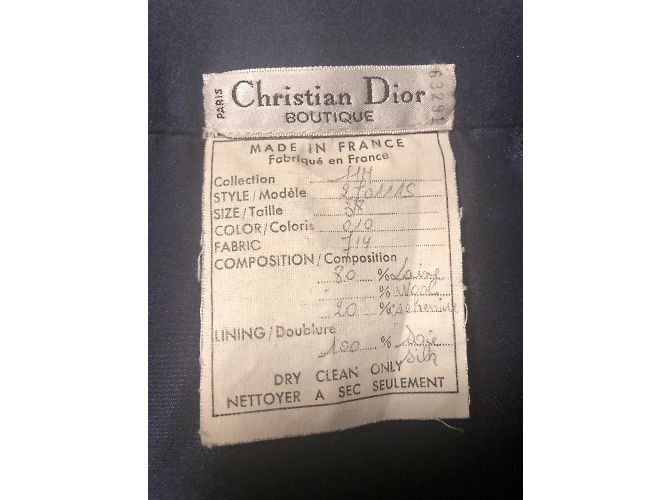 PARIS
Christian Dior
63291
BOUTIQUE
MADE IN FRANCE
Fabriqué en France
Collection
STYLE/Modèle
SIZE/Taille 38
COLOR/Coloris 010
FABRIC 714
COMPOSITION/Composition
80 % Laine
% Wool
20 %
LINING/Doublure
100 % Soie
Silk
DRY CLEAN ONLY
NETTOYER A SEC SEULEMENT